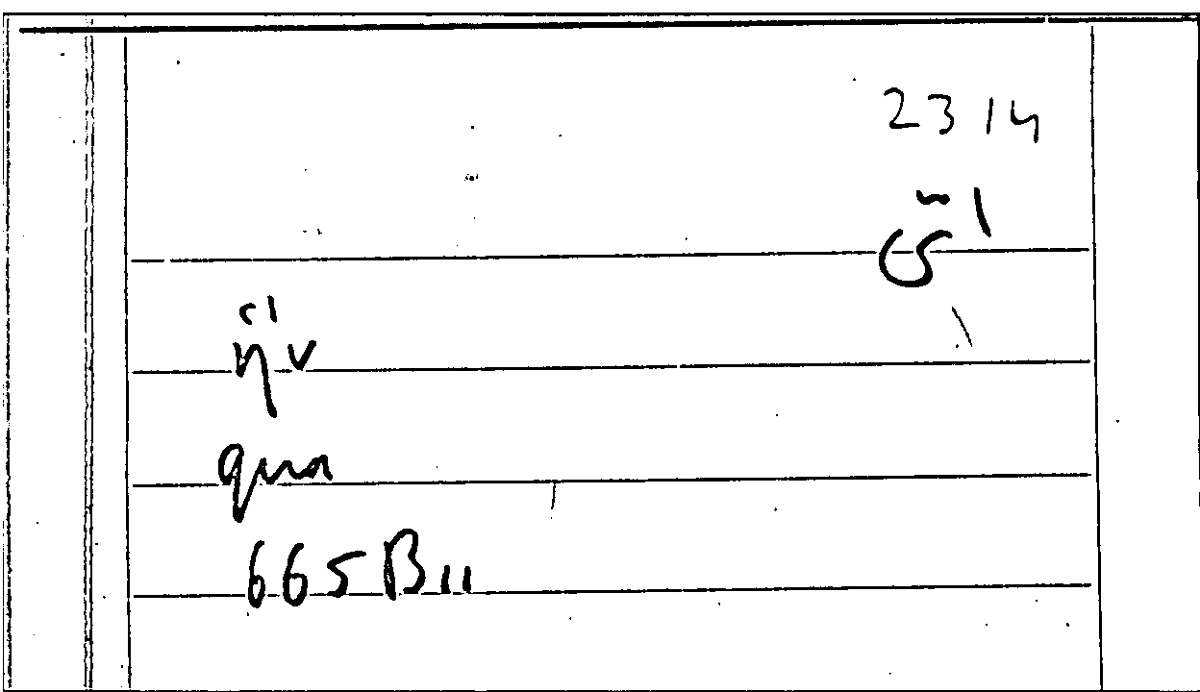 2314
ἥν
qua
665B11